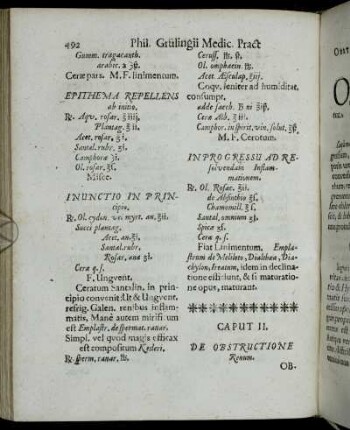 492 Phil. Grülingii Medic. Pract
Gumm. tragacanth.
arabic. a ʒß.
Ceræ pars. M. F. linimentum.
EPITHEMA REPELLENS
ab initio.
℞. Aqv. rosar. ℥iiij.
Plantag. ℥ii.
Acet. rosar. ℥i.
Santal. rubr. ʒi.
Camphoræ ℈i.
Ol. rosar. ℥ß.
Misce.
INUNCTIO IN PRIN-
cipio,
℞. Ol. cydon. ve. myrt. an. ℥ii.
Succi plantag.
Acet. an. ℥i.
Santal. rubr.
Rosar. ana ʒi.
Ceræ q. s.
F. Ungvent.
Ceratum Santalin. in prin-
cipio convenit & Ungvent.
refrig. Galen. renibus inflam-
matis. Mane autem mirifi um
est Emplastr. de spermat. ranar.
Simpl. vel quod magis efficax
est compositum Kesleri.
℞. sperm. ranar. ℔.
Ceruss. ℔. ß.
Ol. omphacin. ℔.
Acet. ℥iij.
Coqv. leniter ad humiditat.
consumpt.
adde
Ceræ Alb. ℥iii.
Camphor. in spirit. vin. solut. ℥ß
M. F. Cerotum.
IN PROGRESSU AD RE-
solvendam Inflam-
mationem.
℞. Ol. Rosac. ℥ii.
de Absinthio ℥i.
Chamomill. ℥ß.
Santal. omnium ʒi.
Spicæ ʒß.
Ceræ q. s.
Fiat Linimentum, Empla-
strum de Meliloto, Dialthæa, Dia-
chylon, ireatum, idem in declina-
tione est: sunt, & si maturatio-
ne opus, maturant.
CAPUT II.
DE OBSTRUCTIONE
Renum.
OB-